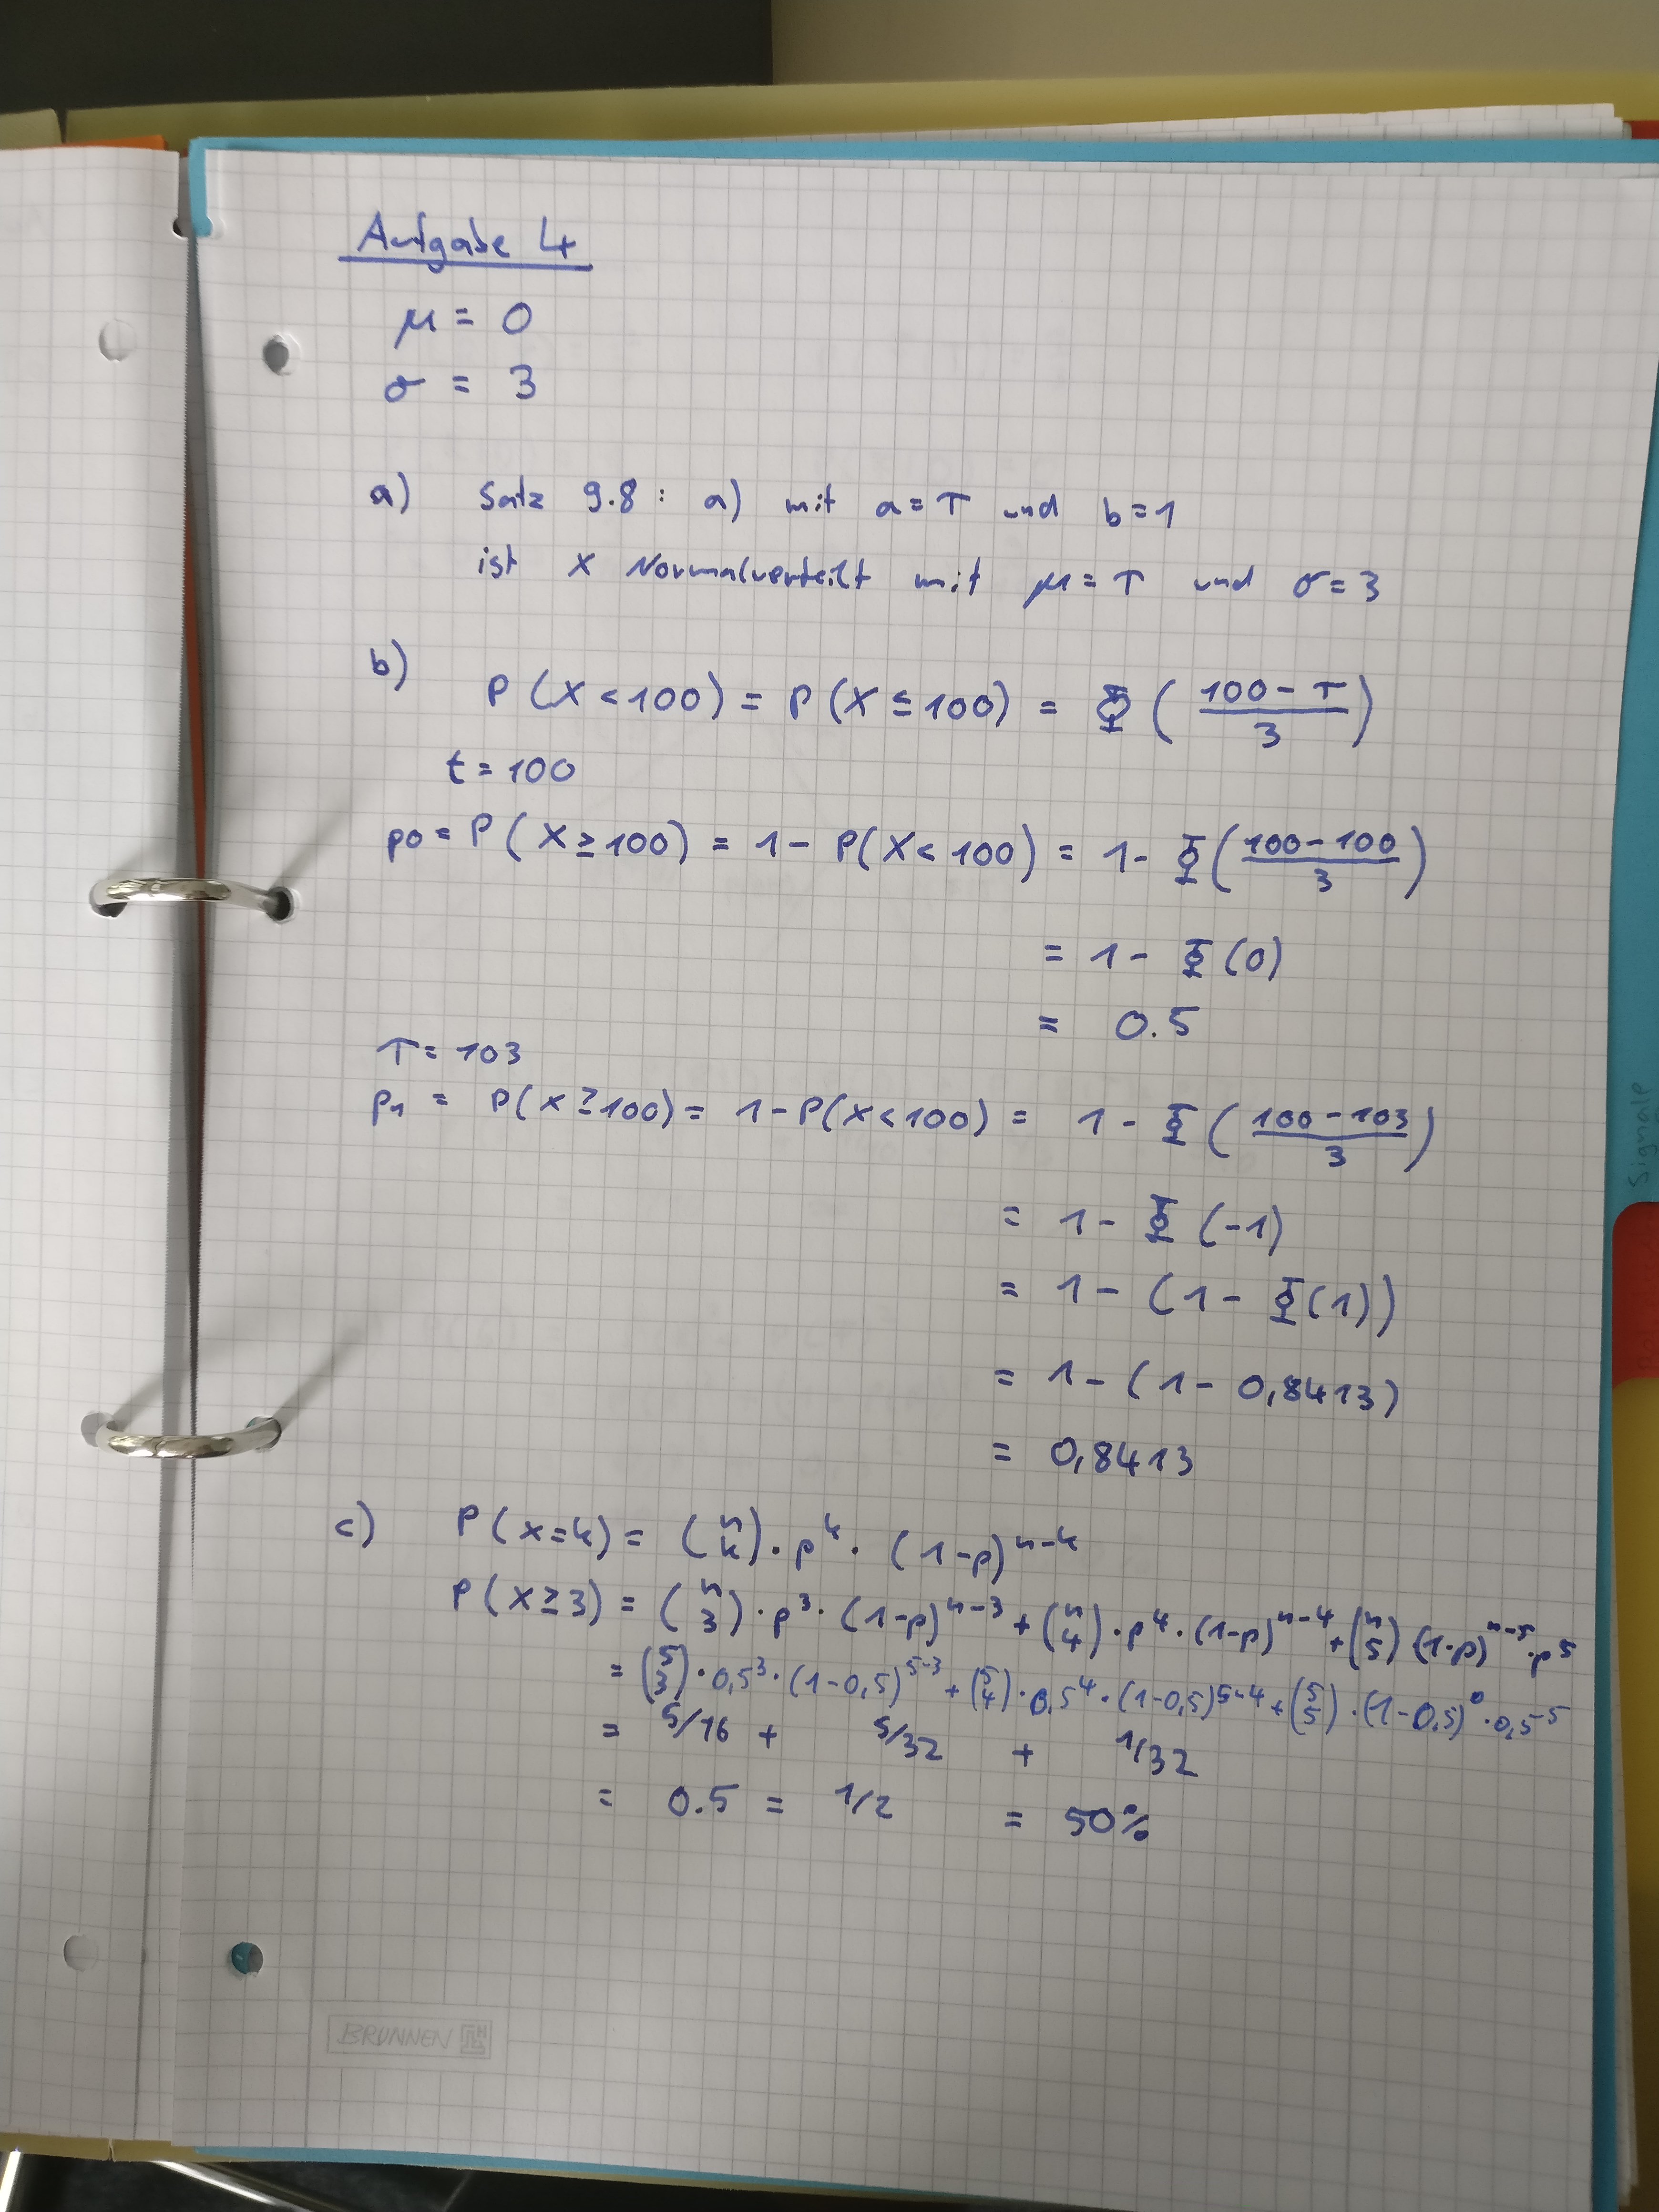 Aufgabe 4
μ = 0
σ = 3
a) Satz 9.8 : a) mit a = T und b = 1
ist X Normalverteilt mit μ = T und σ = 3
b) P (X < 100) = P (X ≤ 100) = Φ ( (100 - T)/3 )
t = 100
p0 = P ( X ≥ 100) = 1 - P(X < 100) = 1 - Φ ( (100 - 100)/3 )
= 1 - Φ (0)
= 0.5
T = 103
p₁ = P(X ≥ 100) = 1 - P(X < 100) = 1 - Φ ( (100 - 103)/3 )
= 1 - Φ (-1)
= 1 - (1 - Φ(1))
= 1 - (1 - 0,8413)
= 0,8413
c) P (x = k) = (n k) · p^k · (1-p)^n-k
P (x ≥ 3) = (n 3) · p^3 · (1-p)^n-3 + (n 4) · p^4 · (1-p)^n-4 + (n 5) (1-p)^n-5 · p^5
= (5 3) · 0,5^3 · (1-0,5)^5-3 + (5 4) · 0,5^4 · (1-0,5)^5-4 + (5 5) · (1-0,5)^0 · 0,5^5
= 5/16 + 5/32 + 1/32
= 0.5 = 1/2 = 50%
BRUNNEN
Signale